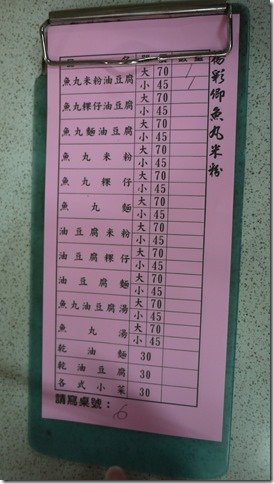 楊影御魚丸米粉
魚丸米粉油豆腐 大 70 /
小 45 /
魚丸粿仔油豆腐 大 70
小 45
魚丸麵油豆腐 大 70
小 45
魚丸米粉 大 70
小 45
魚丸粿仔 大 70
小 45
魚丸麵 大 70
小 45
油豆腐米粉 大 70
小 45
油豆腐粿仔 大 70
小 45
油豆腐麵 大 70
小 45
魚丸油豆腐湯 大 70
小 45
魚丸湯 大 70
小 45
乾油麵 30
乾油豆腐 30
各式小菜 30
請寫桌號：6